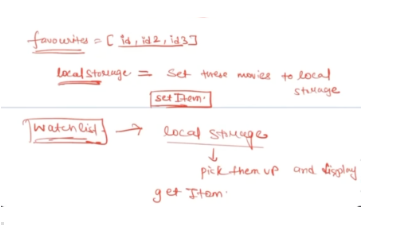 favourites = [ id, id2, id3 ]
local storage = set these movies to local
storage
set Item.
Watchlist → local storage
↓
pick them up and display
get Item.